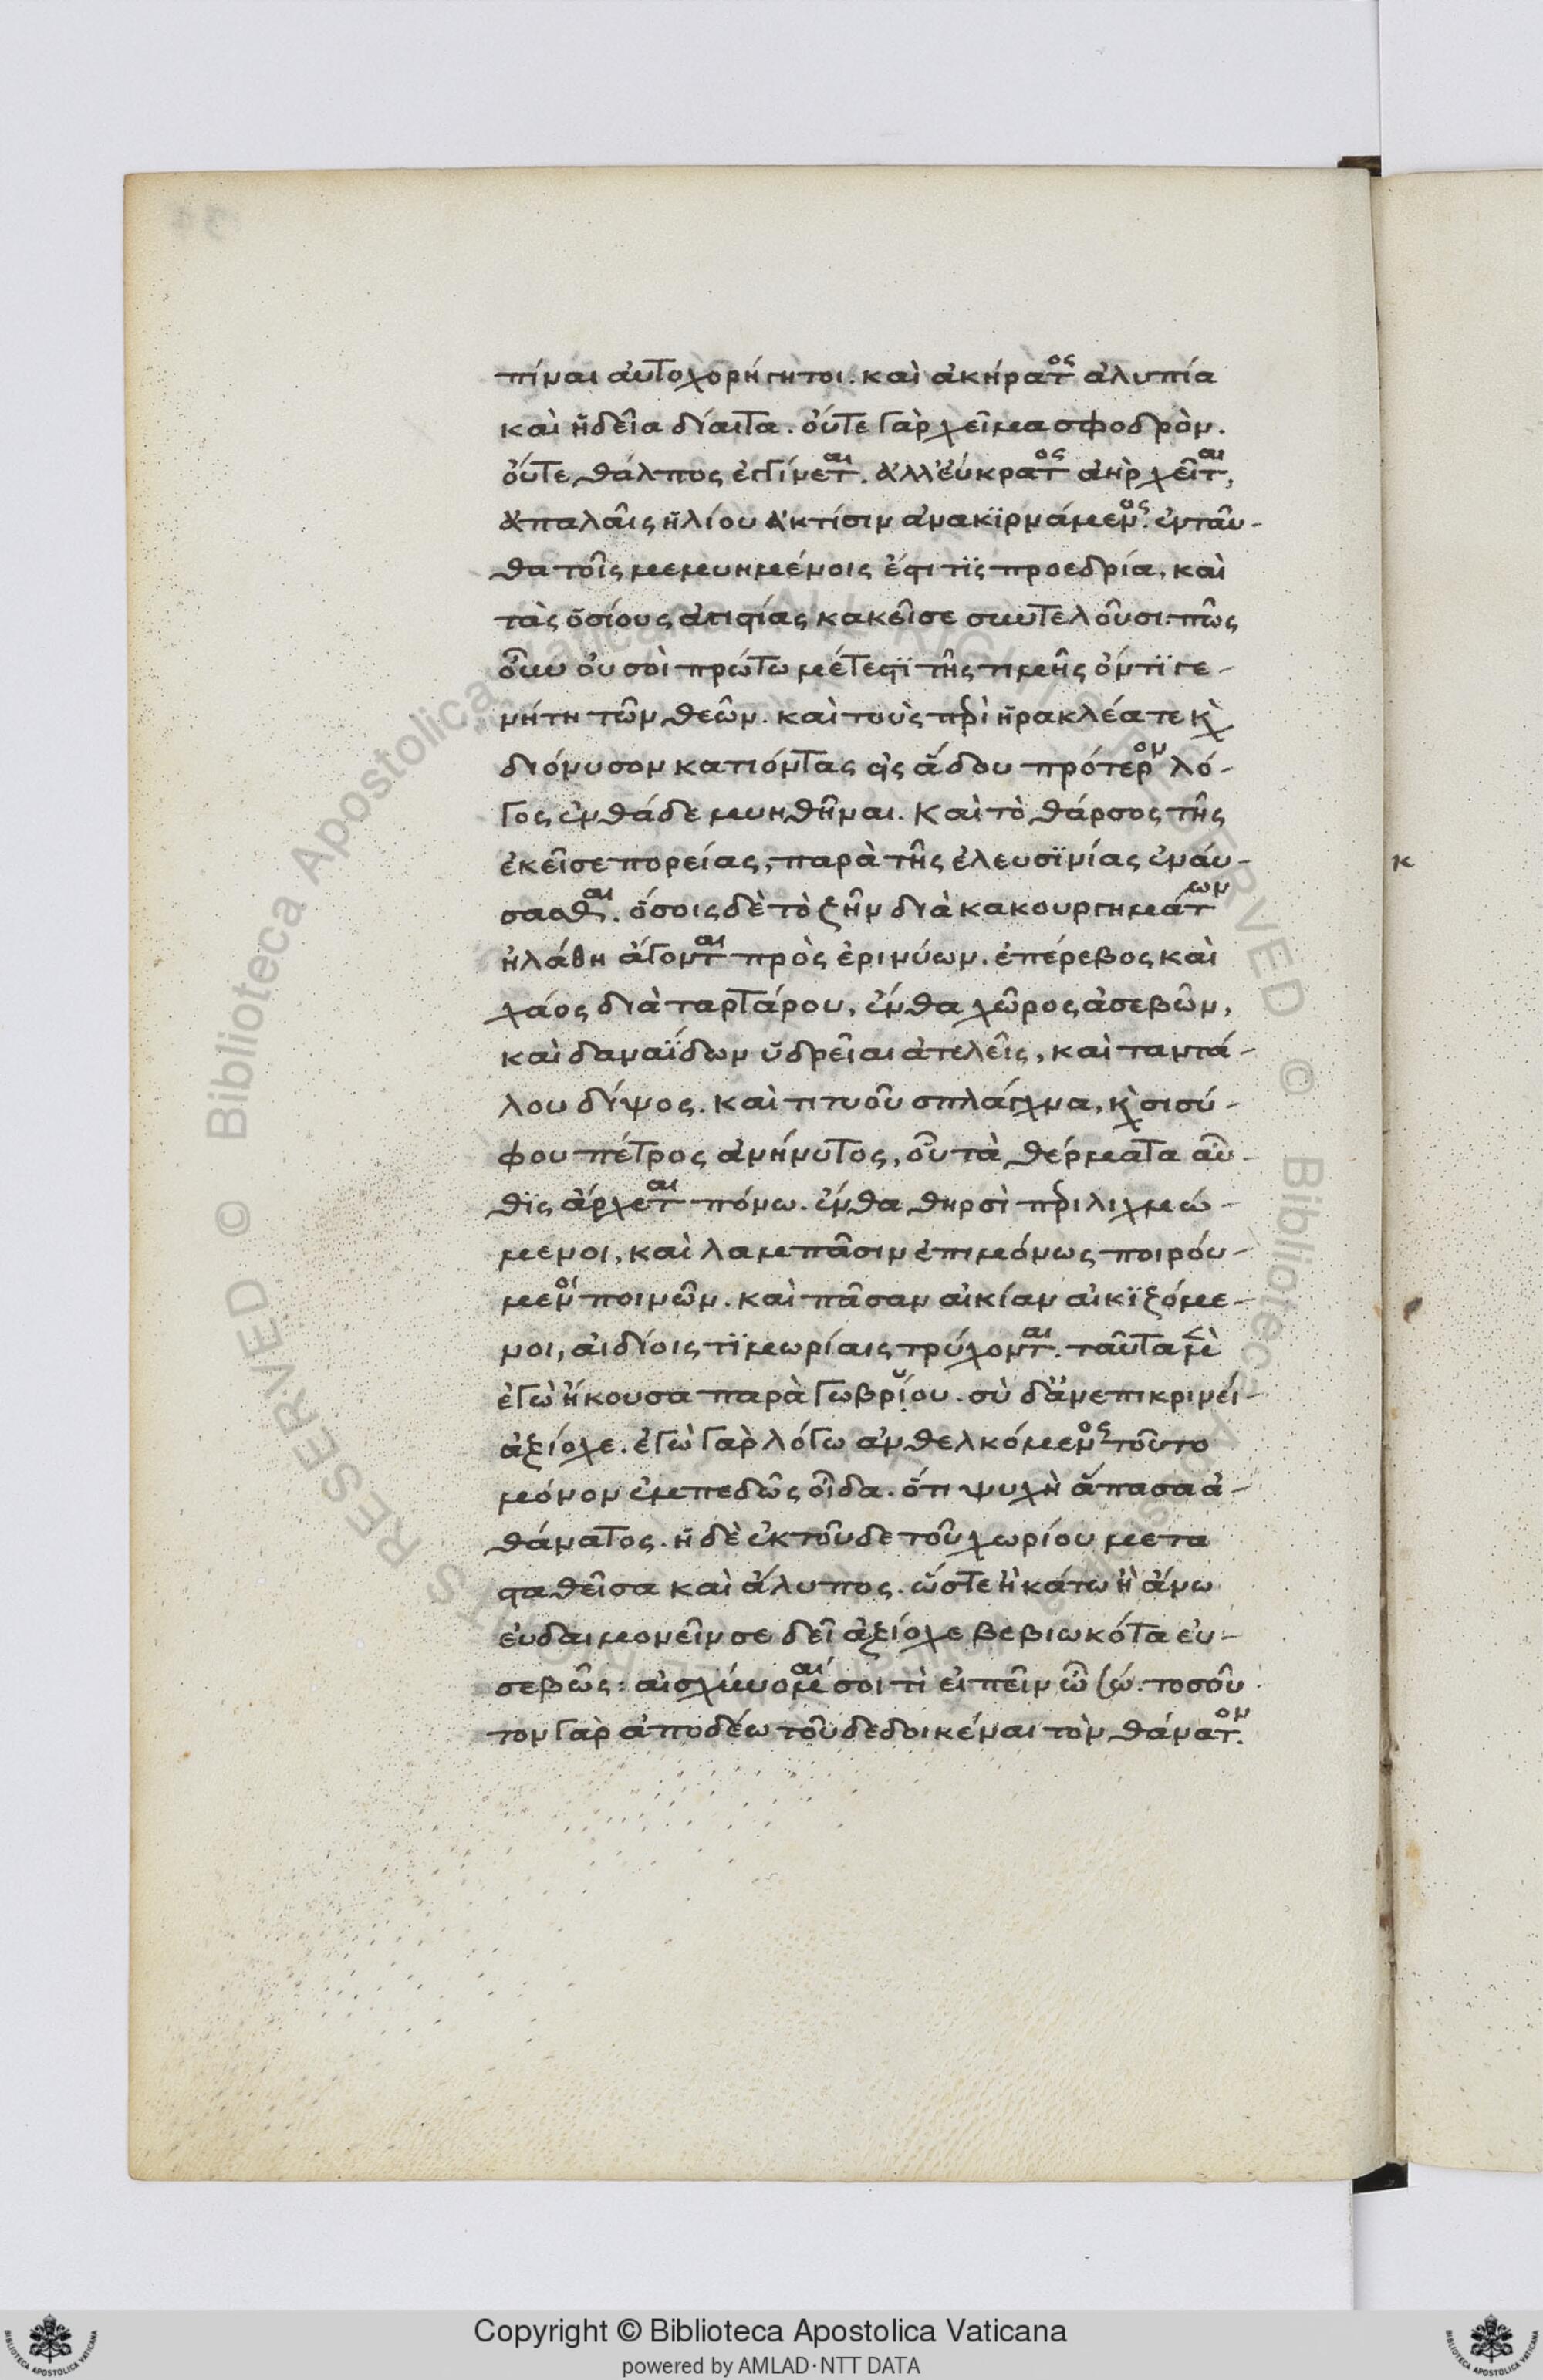 πίναι αὐτοχορήγητοι. καὶ ἀκήρατος ἀλυπία
καὶ ἡδεῖα δίαιτα. οὔτε γὰρ χεῖμα σφοδρὸν.
οὔτε θάλπος ἐγγίνεται. ἀλλ' εὔκρατος ἀὴρ χεῖται,
ἁπαλαῖς ἡλίου ἀκτίσιν ἀνακιρνάμενος. ἐνταῦ-
θα τοῖς μεμυημένοις ἐστί τις προεδρία, καὶ
τὰς ὁσίους ἁγιστίας κἀκεῖσε συντελοῦσι. πῶς
οὖν οὐ σοὶ πρώτω μέτεστι τῆς τιμῆς ὄντι γε-
νήτη τῶν θεῶν. καὶ τοὺς περὶ ἡρακλέα τε κὰι
διόνυσον κατιόντας εἰς ἅδου πρότερον λό-
γος ἐνθάδε μυηθῆναι. καὶ τὸ θάρσος τῆς
ἐκεῖσε πορείας, παρὰ τῆς ἐλευσινίας ἐναύ-
σασθαι. ὅσοις δὲ τὸ ζῆν διὰ κακουργημάτων
ἠλάθη ἄγονται πρὸς ἐρινύων. ἐπέρεβος καὶ
χάος διὰ ταρτάρου, ἔνθα χῶρος ἀσεβῶν,
καὶ δαναΐδων ὑδρεῖαι ἀτελεῖς, καὶ ταντά-
λου δίψος. καὶ τιτυοῦ σπλάγχνα, κὰι σισύ-
φου πέτρος ἀνήνυτος, οὗ τὰ θέρματα αὖ-
θις ἄρχεται πόνω. ἔνθα θηρσὶ περιλιχμώ-
μενοι, καὶ λαμπᾶσιν ἐπιμόνως ποιρού-
μενοι ποινῶν. καὶ πᾶσαν αἰκίαν αἰκιζόμε-
νοι, ἀιδίοις τιμωρίαις τρύχονται. ταῦτα μὲν
ἐγὼ ἤκουσα παρὰ γωβρύου. σὺ δ' ἂν ἐπικρινεί-
ἀξίοχε. ἐγὼ γὰρ λόγω ἀνθελκόμενος τοῦτο
μόνον ἐμπεδῶς οἶδα. ὅτι ψυχὴ ἅπασα ἀ-
θάνατος. ἡ δὲ ἐκ τοῦδε τοῦ χωρίου μετα
σταθεῖσα καὶ ἄλυπος. ὥστε ἢ κάτω ἢ ἄνω
εὐδαιμονεῖν σε δεῖ ἀξίοχε βεβιωκότα εὐ-
σεβῶς: αἰσχύνομαί σοι τὶ εἰπεῖν ὦ σώ. τοσοῦ
τον γὰρ ἀποδέω τοῦ δεδοικέναι τὸν θάνατον.
κ
Copyright © Biblioteca Apostolica Vaticana
powered by AMLAD·NTT DATA